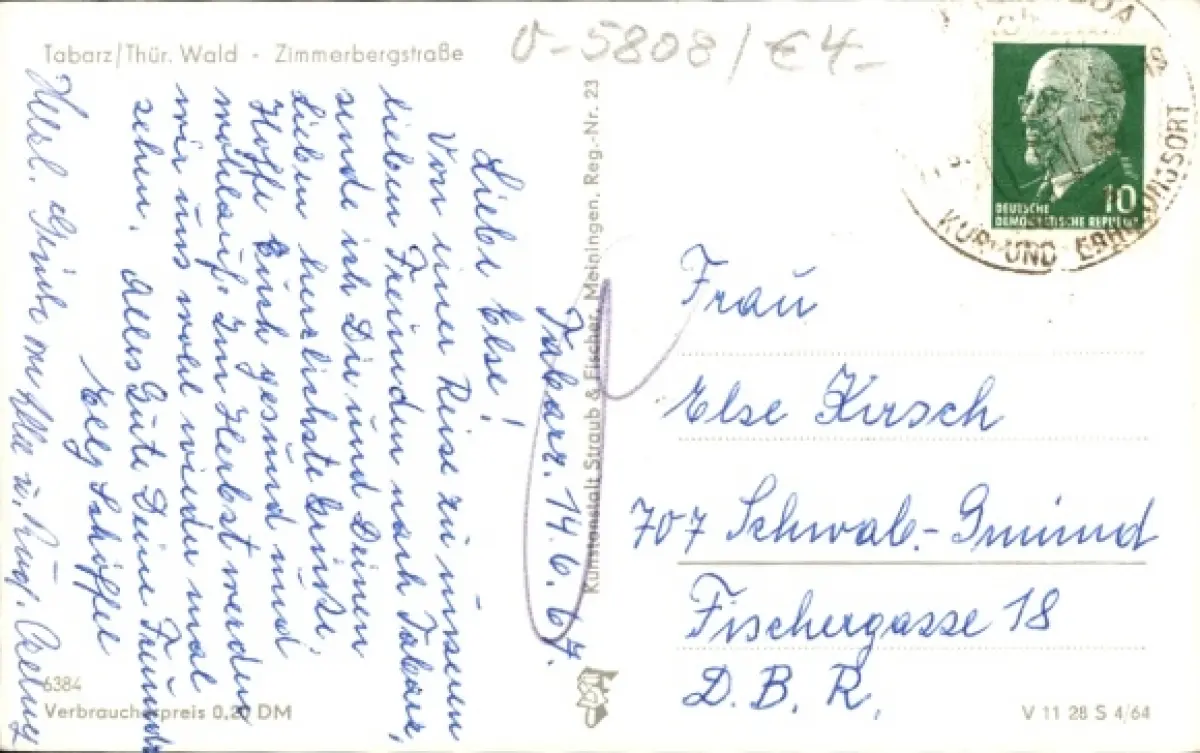 Tabarz/Thür. Wald - Zimmerbergstraße
v-5808/€4-
Tabarz. 14.6.67.
Liebe Else!
Von einer Reise zu unseren
lieben Freunden nach Tabarz,
sende ich Dir und Deinen
Lieben herzlichste Grüße.
Hoffe Euch gesund und
wohlauf. Im Herbst werden
wir uns wohl wieder mal
sehen. Alles Gute Deine Freundin
Elly Schöffel
Herzl. Grüße
Kunstanstalt Straub & Fischer, Meiningen, Reg.-Nr. 23
DEUTSCHE
DEMOKRATISCHE REPUBLIK
10
KUR- UND ERHOLUNGSORT
Frau
Else Kirsch
707 Schwäb.-Gmünd
Fischergasse 18
D.B.R.
6384
Verbraucherpreis 0,20 DM
V 11 28 S 4/64